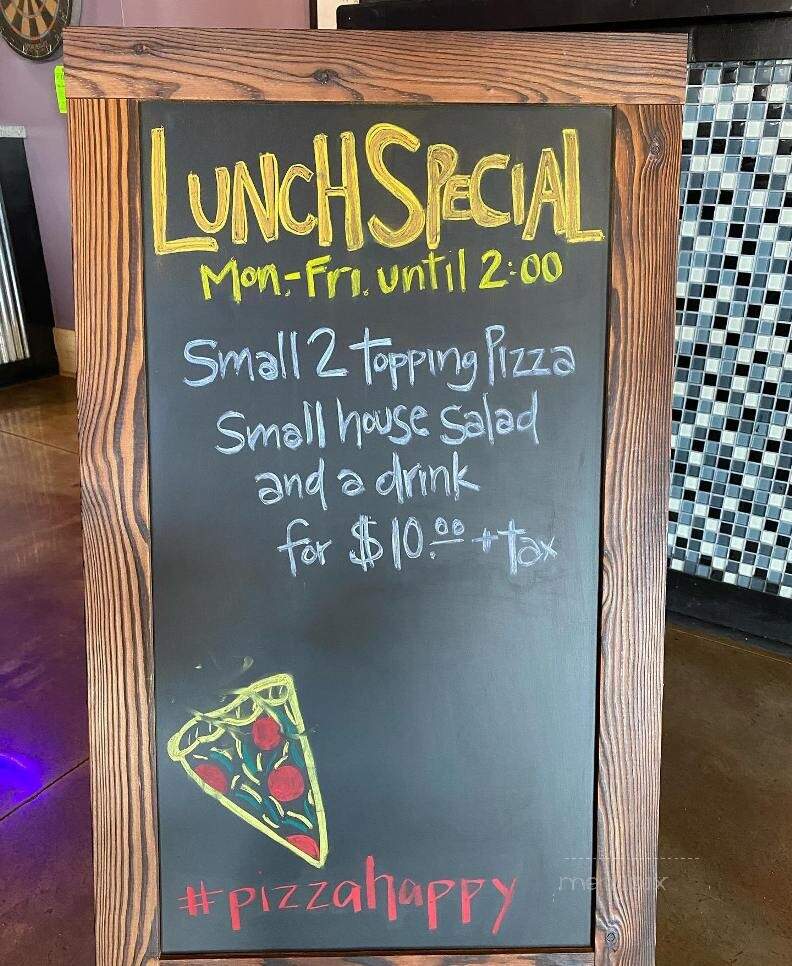 LUNCH SPECIAL
Mon.-Fri. until 2:00
Small 2 topping Pizza
Small house salad
and a drink
for $10.00 + tax
#pizzahappy